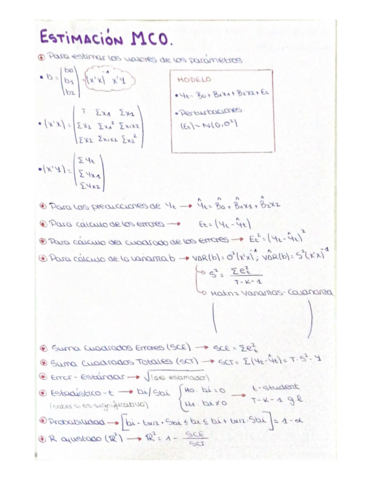 ESTIMACIÓN MCO.
Para estimar los valores de los parámetros
b = (b0 b1 b2) = (x'x)⁻¹ x'y
MODELO
Yt = B0 + B1x1 + B2x2 + Et
Perturbaciones
(Et) ~ N(0, σ²)
(x'x) = (T Σx1 Σx2
Σx1 Σx1² Σx1x2
Σx2 Σx1x2 Σx2²)
(x'y) = (Σyt
Σyx1
Σyx2)
Para las predicciones de Yt → Ŷt = B̂0 + B̂1x1 + B̂2x2
Para cálculo de los errores → Et = (Yt - Ŷt)
Para cálculo del cuadrado de los errores → Et² = (Yt - Ŷt)²
Para cálculo de la varianza b → VAR(b) = σ²(x'x)⁻¹, VÂR(b) = S²(x'x)⁻¹
S² = Σe²t / T-K-1
Matriz Varianzas-Covarianza
Suma Cuadrados Errores (SCE) → SCE = Σe²t
Suma Cuadrados Totales (SCT) → SCT =
Error-Estándar →
Estadístico-t → bi/Sbi { H0: bi = 0 → t-student
H1: bi ≠ 0 T-K-1 gl
Probabilidad → [bi - tα/2 · Sbi ≤ bi ≤ bi + tα/2 · Sbi] = 1 - α
R ajustado (R²) → R² = 1 - SCE / SCT